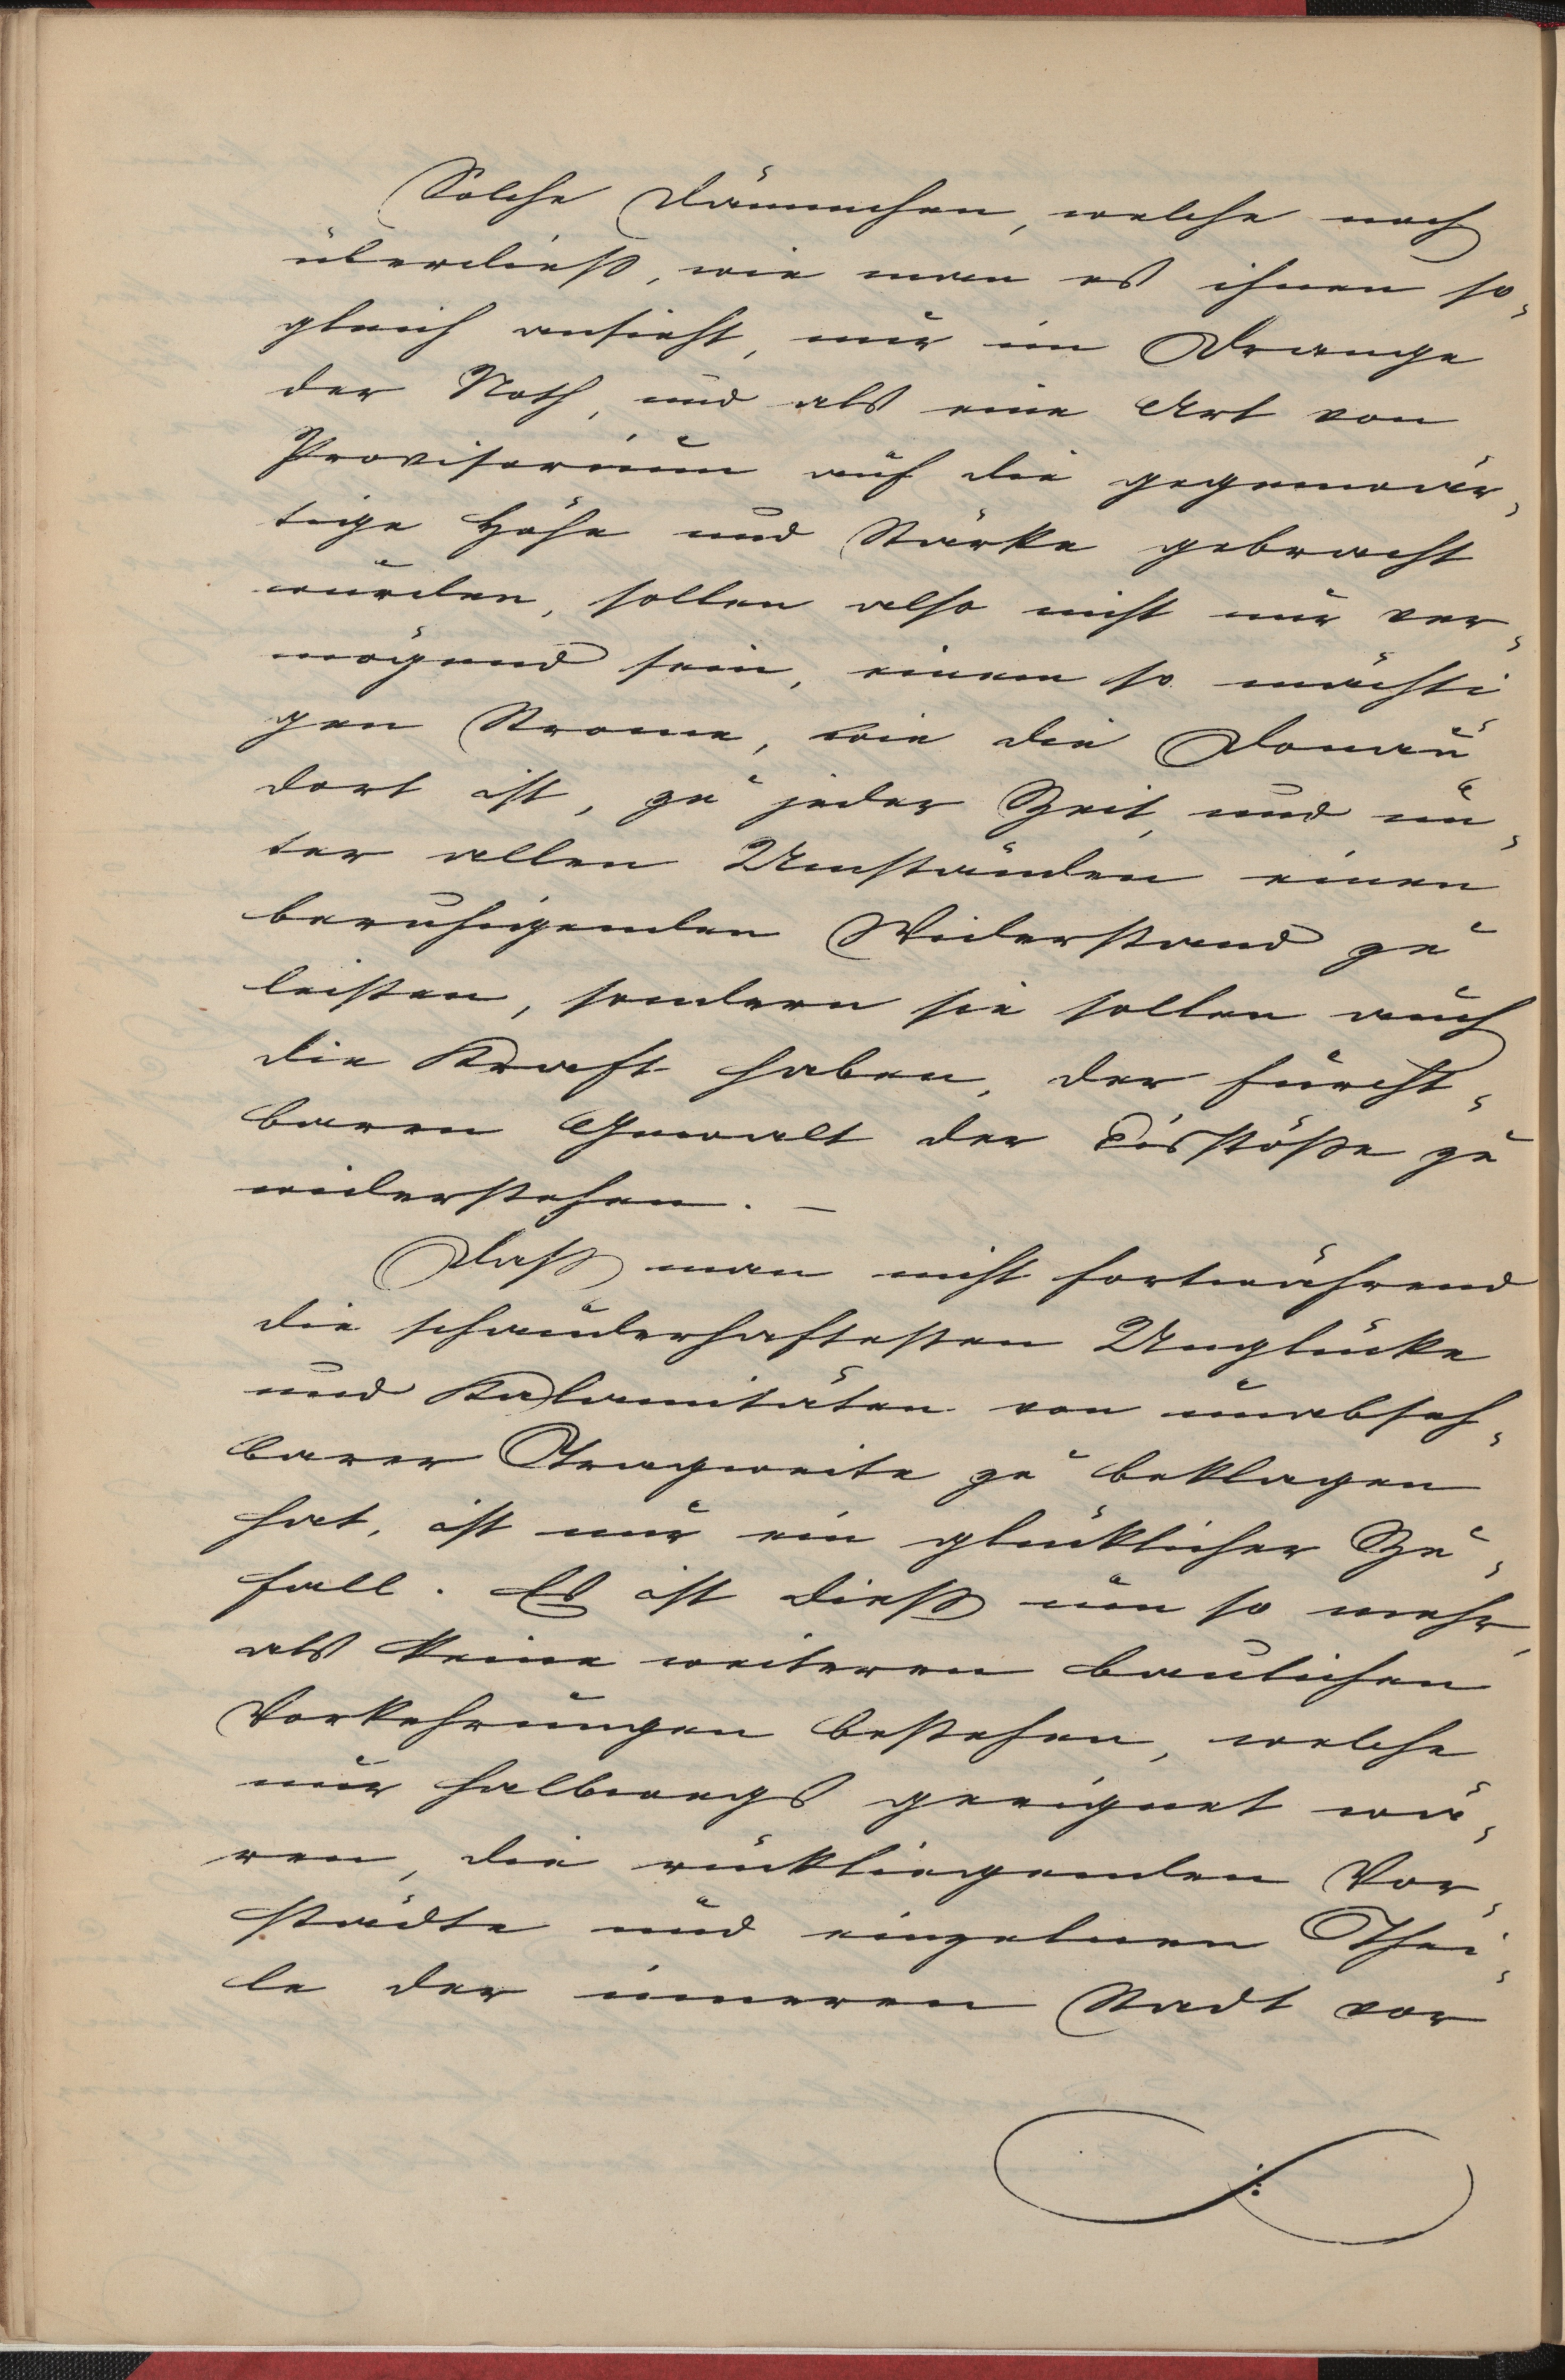 Solche Dämmchen, welche noch
überdieß, wie man es ihnen so-
gleich ansieht, nur im Drange
der Noth, und als eine Art von
Provisorium auf die gegenwär-
tige Höhe und Stärke gebracht
wurden, sollen also nicht nur ver-
mögend sein, einem so mächti
gen Strome, wie die Donau
dort ist, zu jeder Zeit, und un-
ter allen Umständen einen
beruhigenden Widerstand zu
leisten, sondern sie sollen auch
die Kraft haben, der furcht-
baren Gewalt der Eisstöße zu
widerstehen. –
Daß man nicht fortwährend
die schauderhaftesten Unglücke
und Kalamitäten von unabseh-
barer Tragweite zu beklagen
hat, ist nur ein glücklicher Zu-
fall. Es ist dieß um so mehr,
als keine weiteren baulichen
Vorkehrungen bestehen, welche
nur halbwegs geeignet wä-
ren, die rückliegenden Vor-
städte und einzelnen Thei-
le der inneren Stadt vor